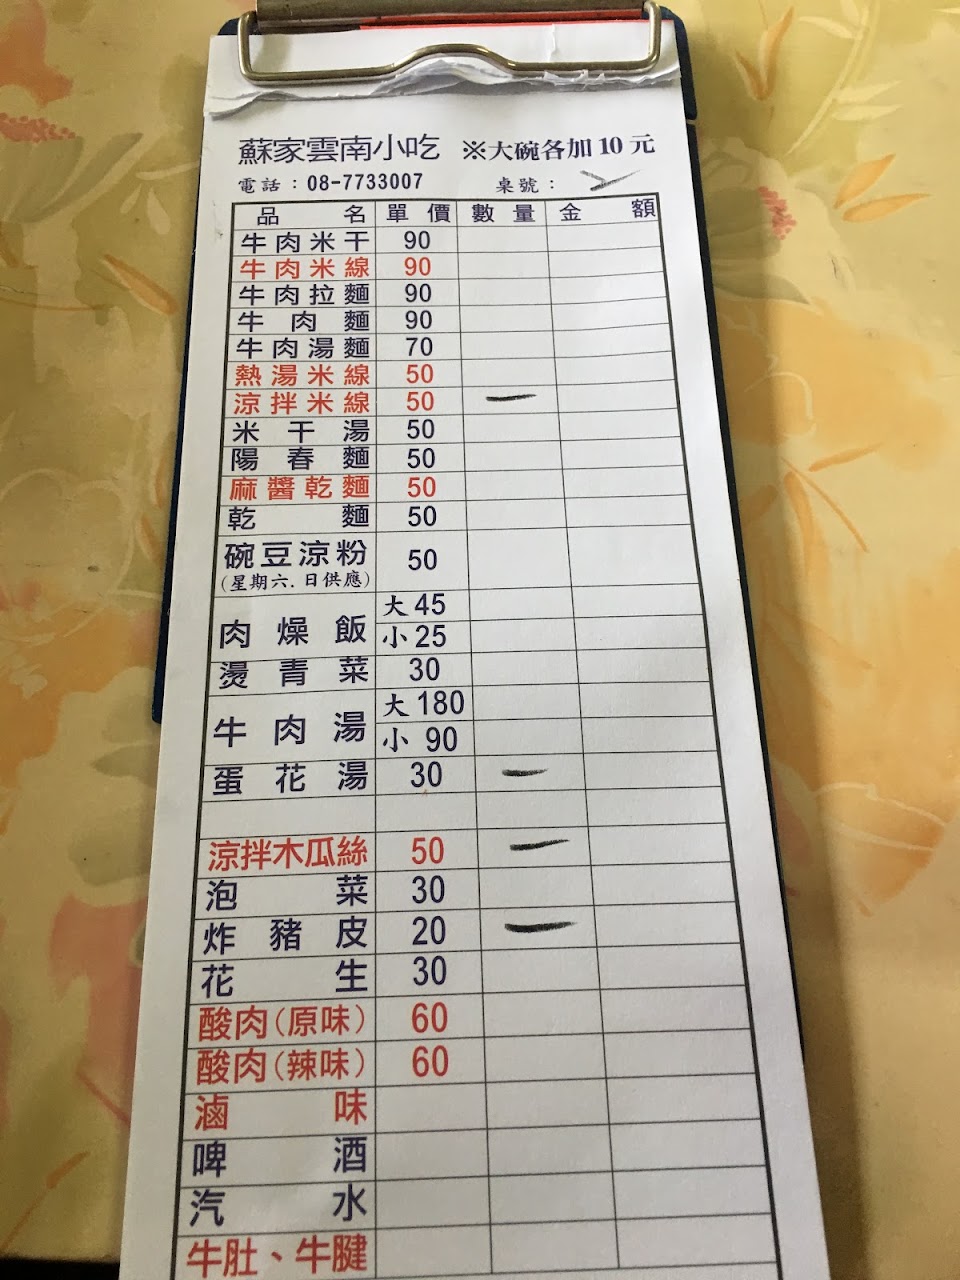 蘇家雲南小吃 ※大碗各加 10 元
電話：08-7733007 桌號：
品名 單價 數量 金額
牛肉米干 90
牛肉米線 90
牛肉拉麵 90
牛肉麵 90
牛肉湯麵 70
熱湯米線 50
涼拌米線 50 一
米干湯 50
陽春麵 50
麻醬乾麵 50
乾麵 50
碗豆涼粉 50
(星期六.日供應)
肉燥飯 大 45
小 25
燙青菜 30
牛肉湯 大 180
小 90
蛋花湯 30 一
涼拌木瓜絲 50 一
泡菜 30
炸豬皮 20 一
花生 30
酸肉(原味) 60
酸肉(辣味) 60
滷味
啤酒
汽水
牛肚、牛腱